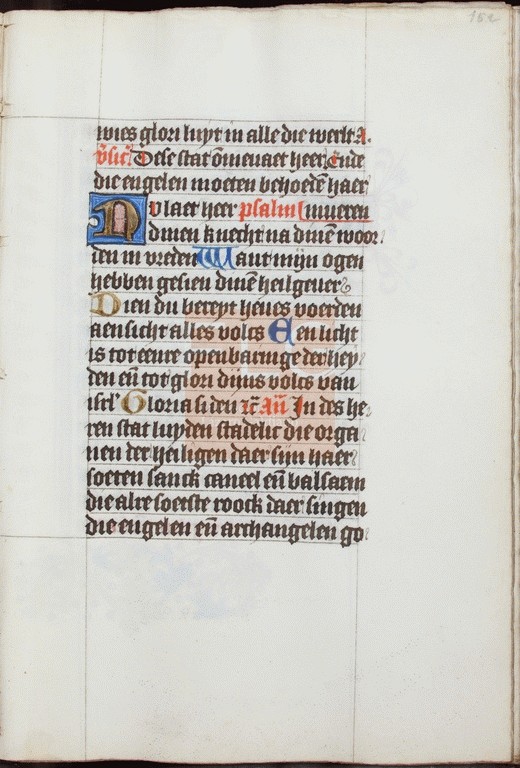 152
wies glori luyt in alle die werlt A.
v̄sic̄. Dese stat ōmevaet heer Ende
die engelen moeten behoedē haer
Nv laet heer psalm in vreden
dinen knecht na dinē woor
den in vreden Want mijn ogen
hebben gesien dinē heilgever
Dien du bereyt heves voerden
aensicht alles volcs Een licht
is tot eenre openbaringe der hey
den eñ tot glori dijns volcs van
isrl' Gloria si den ⁊c̄ Añ In des he
ren stat luyden stadelic die orga
nen der heiligen daer sijn haer
soeten sanck caneel eñ balsaem
die alre soetste roock daer singen
die engelen eñ archangelen go